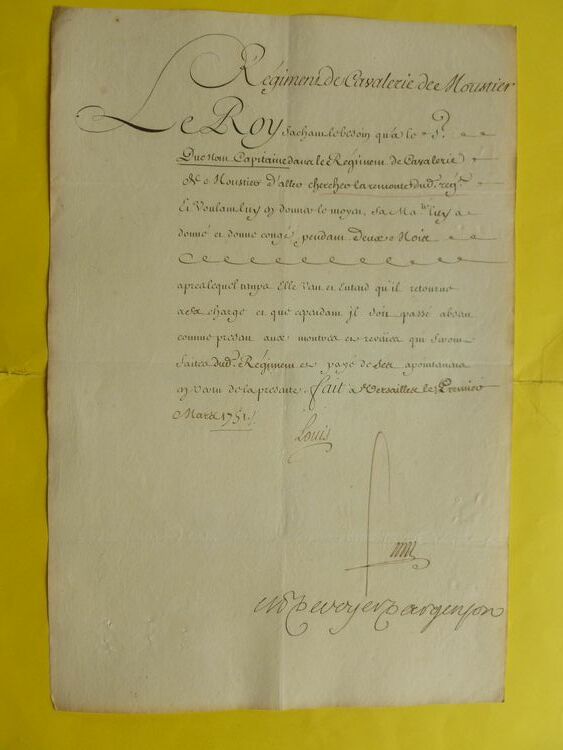 Régiment de Cavalerie de Moustier
Le Roy Sachant le besoin qu'a le S.r
Dunom Capitaine dans le Régiment de Cavalerie
de Moustier d'aller chercher la remonte dud. reg.t
Et Voulant luy en donner le moyen, Sa Ma.té luy a
donné et donne congé pendant deux Mois
apres lequel temps Elle Veut et Entend qu'il retourne
a sa charge et que cependant il soit passé absent
comme present aux montres et reveües qui seront
faites dud. Régiment et payé de ses apointemens
en vertu de la presente. fait a Versailles le Premier
Mars 1751.
Louis
M De voyer Dargenson